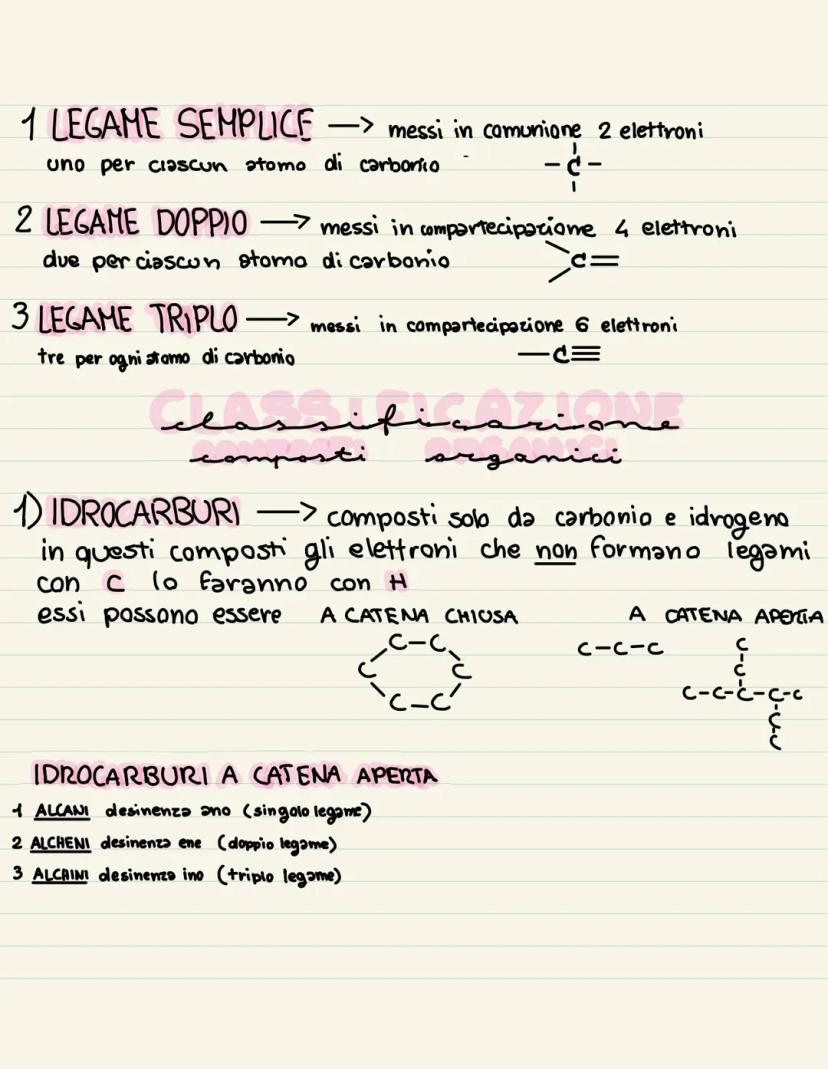 1 LEGAME SEMPLICE —> messi in comunione 2 elettroni
uno per ciascun atomo di carbonio - C -
2 LEGAME DOPPIO —> messi in compartecipazione 4 elettroni
due per ciascun atomo di carbonio >C=
3 LEGAME TRIPLO —> messi in compartecipazione 6 elettroni
tre per ogni atomo di carbonio —C≡
CLASSIFICAZIONE
classificazione
COMPOSTI ORGANICI
composti organici
1) IDROCARBURI —> composti solo da carbonio e idrogeno
in questi composti gli elettroni che non formano legami
con C lo faranno con H
essi possono essere A CATENA CHIUSA A CATENA APERTA
C-C C-C-C C
C C C
C-C C-C-C-C-C
C
C
IDROCARBURI A CATENA APERTA
1 ALCANI desinenza ano (singolo legame)
2 ALCHENI desinenza ene (doppio legame)
3 ALCHINI desinenza ino (triplo legame)